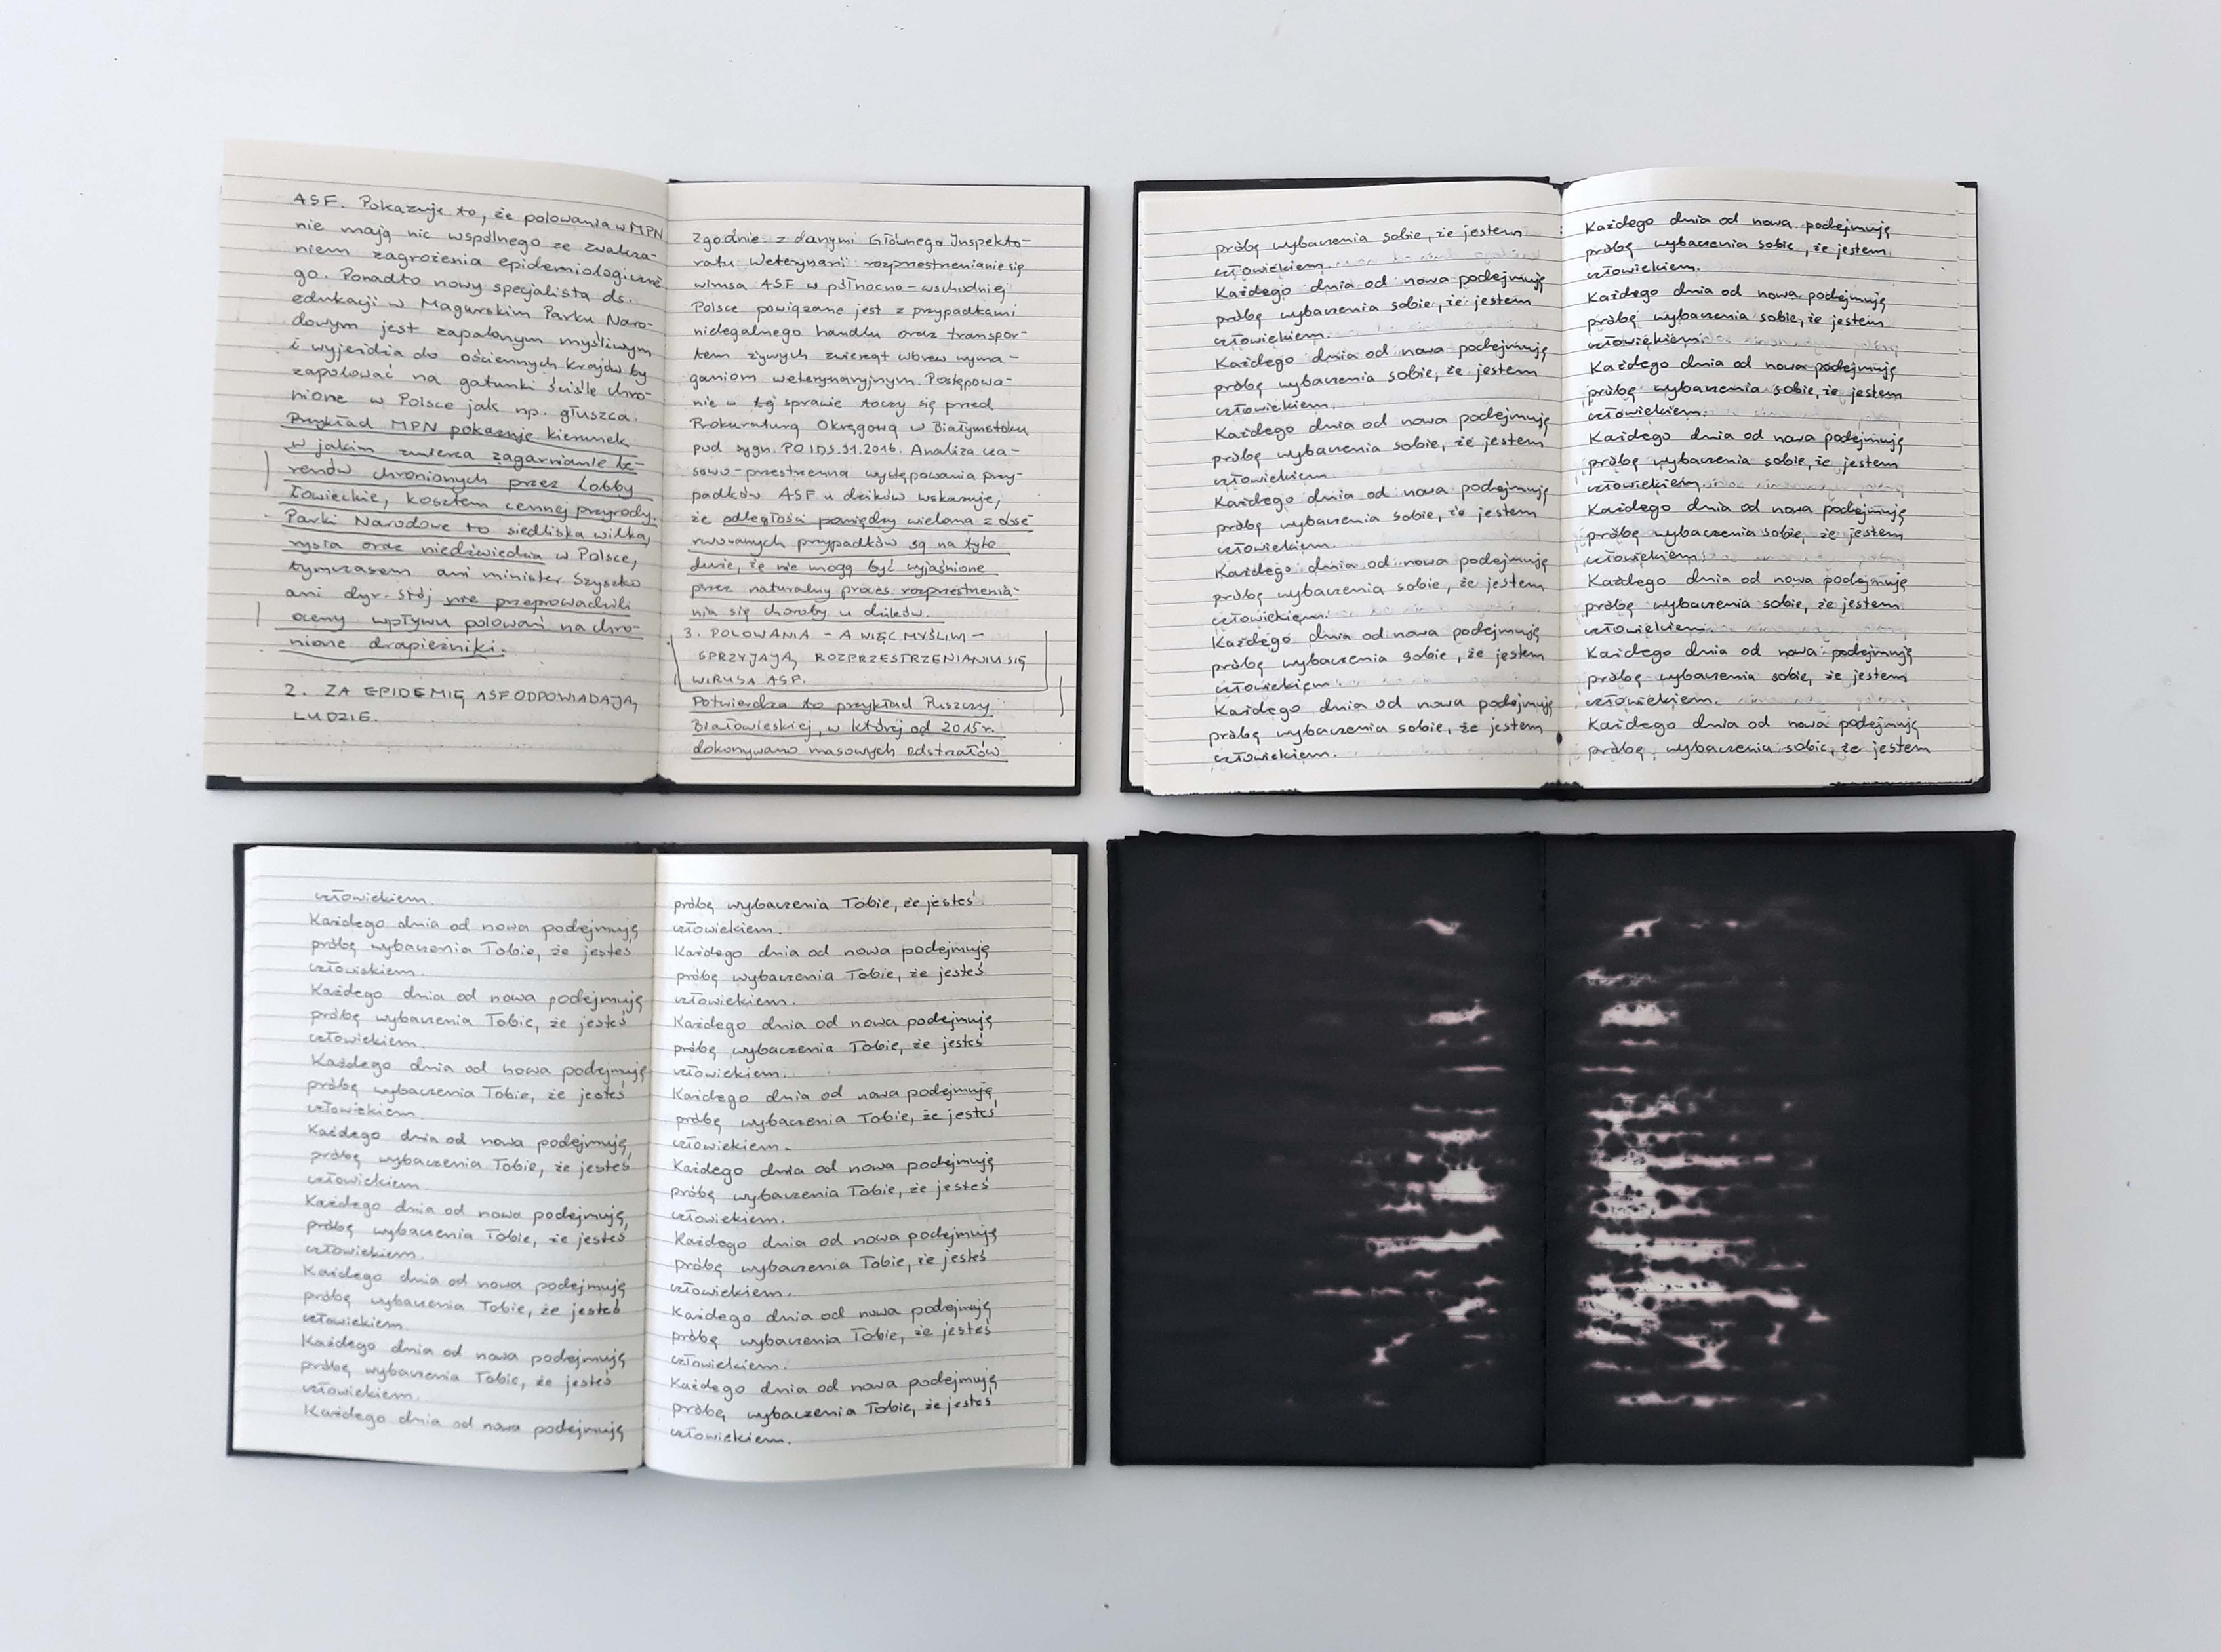 ASF. Pokazuje to, że polowania w MPN
nie mają nic wspólnego ze zwalcza-
niem zagrożenia epidemiologiczne-
go. Ponadto nowy specjalista ds.
edukacji w Magurskim Parku Naro-
dowym jest zapalonym myśliwym
i wyjeżdża do ościennych krajów by
zapolować na gatunki ściśle chro-
nione w Polsce jak np. głuszca.
Przykład MPN pokazuje kierunek
w jakim zmierza zagarnianie te-
renów chronionych przez lobby
łowieckie, kosztem cennej przyrody.
Parki Narodowe to siedliska wilka,
rysia oraz niedźwiedzia w Polsce,
tymczasem ani minister Szyszko
ani dyr. Stój nie przeprowadzili
oceny wpływu polowań na chro-
nione drapieżniki.
2. ZA EPIDEMIĘ ASF ODPOWIADAJĄ
LUDZIE.
Zgodnie z danymi Głównego Inspekto-
ratu Weterynarii rozprzestrzenianie się
wirusa ASF w północno-wschodniej
Polsce powiązane jest z przypadkami
nielegalnego handlu oraz transpor-
tem żywych zwierząt wbrew wyma-
ganiom weterynaryjnym. Postępowa-
nie w tej sprawie toczy się przed
Prokuraturą Okręgową w Białymstoku
pod sygn. PO IDS.31.2016. Analiza cza-
sowo-przestrzenna występowania przy-
padków ASF u dzików wskazuje,
że odległości pomiędzy wieloma z obse-
rwowanych przypadków są na tyle
duże, że nie mogą być wyjaśnione
przez naturalny proces rozprzestrzenia-
nia się choroby u dzików.
3. POLOWANIA - A WIĘC MYŚLIWI -
SPRZYJAJĄ ROZPRZESTRZENIANIU SIĘ
WIRUSA ASF.
Potwierdza to przykład Puszczy
Białowieskiej, w której od 2015 r.
dokonywano masowych odstrzałów
próbę wybaczenia sobie, że jestem
człowiekiem.
Każdego dnia od nowa podejmuję
próbę wybaczenia sobie, że jestem
człowiekiem.
Każdego dnia od nowa podejmuję
próbę wybaczenia sobie, że jestem
człowiekiem.
Każdego dnia od nowa podejmuję
próbę wybaczenia sobie, że jestem
człowiekiem.
Każdego dnia od nowa podejmuję
próbę wybaczenia sobie, że jestem
człowiekiem.
Każdego dnia od nowa podejmuję
próbę wybaczenia sobie, że jestem
człowiekiem.
Każdego dnia od nowa podejmuję
próbę wybaczenia sobie, że jestem
człowiekiem.
Każdego dnia od nowa podejmuję
próbę wybaczenia sobie, że jestem
człowiekiem.
Każdego dnia od nowa podejmuję
próbę wybaczenia sobie, że jestem
człowiekiem.
Każdego dnia od nowa podejmuję
próbę wybaczenia sobie, że jestem
człowiekiem.
Każdego dnia od nowa podejmuję
próbę wybaczenia sobie, że jestem
człowiekiem.
Każdego dnia od nowa podejmuję
próbę wybaczenia sobie, że jestem
człowiekiem.
Każdego dnia od nowa podejmuję
próbę wybaczenia sobie, że jestem
człowiekiem.
Każdego dnia od nowa podejmuję
próbę wybaczenia sobie, że jestem
człowiekiem.
Każdego dnia od nowa podejmuję
próbę wybaczenia sobie, że jestem
człowiekiem.
Każdego dnia od nowa podejmuję
próbę wybaczenia sobie, że jestem
człowiekiem.
Każdego dnia od nowa podejmuję
próbę wybaczenia Tobie, że jesteś
człowiekiem.
Każdego dnia od nowa podejmuję
próbę wybaczenia Tobie, że jesteś
człowiekiem.
Każdego dnia od nowa podejmuję
próbę wybaczenia Tobie, że jesteś
człowiekiem.
Każdego dnia od nowa podejmuję
próbę wybaczenia Tobie, że jesteś
człowiekiem.
Każdego dnia od nowa podejmuję
próbę wybaczenia Tobie, że jesteś
człowiekiem.
Każdego dnia od nowa podejmuję
próbę wybaczenia Tobie, że jesteś
człowiekiem.
Każdego dnia od nowa podejmuję
próbę wybaczenia Tobie, że jesteś
człowiekiem.
Każdego dnia od nowa podejmuję
próbę wybaczenia Tobie, że jesteś
człowiekiem.
Każdego dnia od nowa podejmuję
próbę wybaczenia Tobie, że jesteś
człowiekiem.
Każdego dnia od nowa podejmuję
próbę wybaczenia Tobie, że jesteś
człowiekiem.
Każdego dnia od nowa podejmuję
próbę wybaczenia Tobie, że jesteś
człowiekiem.
Każdego dnia od nowa podejmuję
próbę wybaczenia Tobie, że jesteś
człowiekiem.
Każdego dnia od nowa podejmuję
próbę wybaczenia Tobie, że jesteś
człowiekiem.
Każdego dnia od nowa podejmuję
próbę wybaczenia Tobie, że jesteś
człowiekiem.
Każdego dnia od nowa podejmuję
próbę wybaczenia Tobie, że jesteś
człowiekiem.